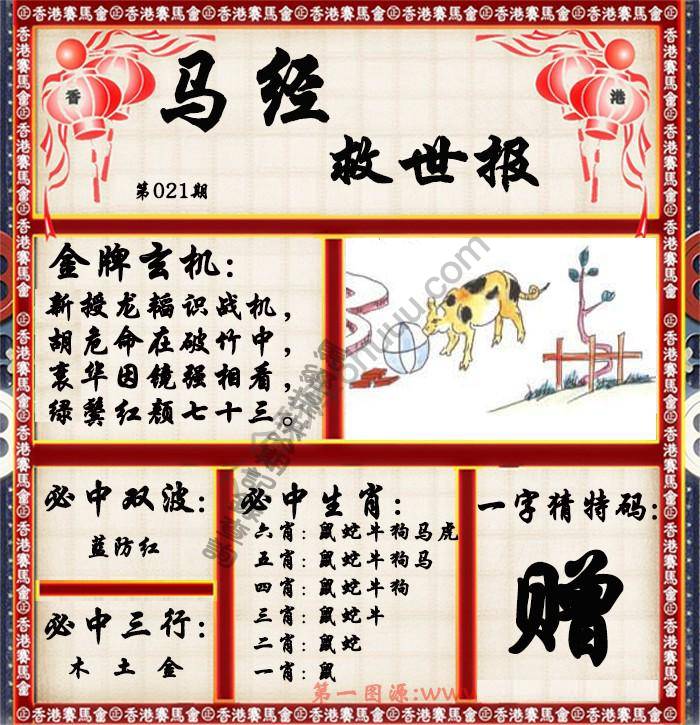 香港賽馬會
香
港
马经
救世报
第021期
金牌玄机：
新授龙韬识战机，
胡危命在破竹中，
衰华因镜强相看，
绿鬓红颜七十三。
必中双波：
蓝防红
必中三行：
木 土 金
必中生肖：
六肖：鼠蛇牛狗马虎
五肖：鼠蛇牛狗马
四肖：鼠蛇牛狗
三肖：鼠蛇牛
二肖：鼠蛇
一肖：鼠
一字猜特码：
赠
第一图源:www